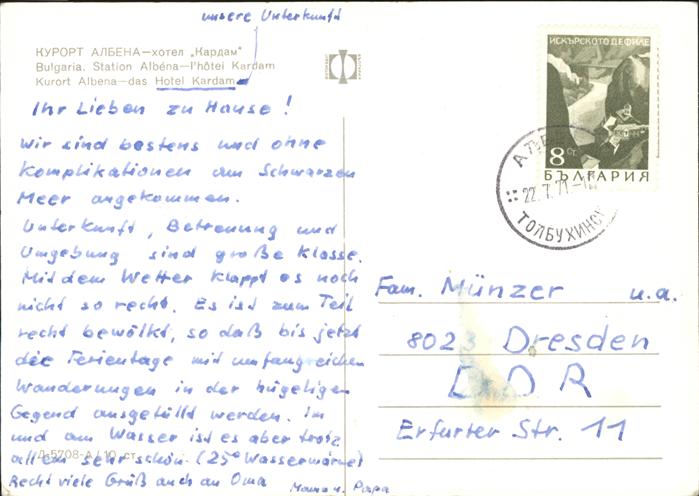 unsere Unterkunft
КУРОРТ АЛБЕНА—хотел „Кардам"
Bulgaria. Station Albéna—l'hôtel Kardam
Kurort Albena—das Hotel Kardam
Ihr Lieben zu Hause!
Wir sind bestens und ohne
Komplikationen am Schwarzen
Meer angekommen.
Unterkunft, Betreuung und
Umgebung sind große Klasse.
Mit dem Wetter klappt es noch
nicht so recht. Es ist zum Teil
recht bewölkt, so daß bis jetzt
die Ferientage mit umfangreichen
Wanderungen in der hügeligen
Gegend ausgefüllt werden. Im
und am Wasser ist es aber trotz
allem sehr schön. (25° Wasserwärme)
Recht viele Grüß auch an Oma
Mama u. Papa
Д-5708-А/10 ст.
ИСКЪРСКОТО ДЕФИЛЕ
8 СТ.
БЪЛГАРИЯ
22.7.71
ТОЛБУХИНСК
Fam. Münzer u.a.
8023 Dresden
DDR
Erfurter Str. 11